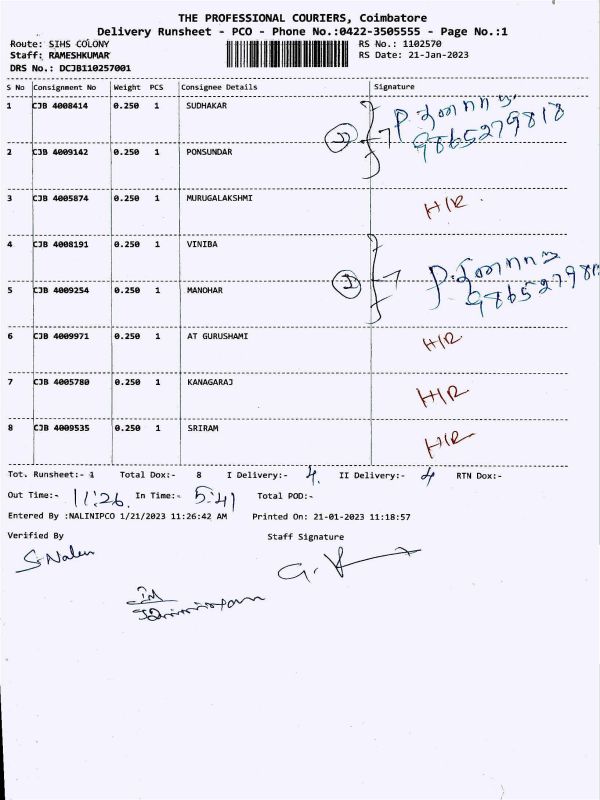 THE PROFESSIONAL COURIERS, Coimbatore
Delivery Runsheet - PCO - Phone No.:0422-3505555 - Page No.:1
Route: SIHS COLONY RS No.: 1102570
Staff: RAMESHKUMAR RS Date: 21-Jan-2023
DRS No.: DCJB110257001
S No Consignment No Weight PCS Consignee Details Signature
1 CJB 4008414 0.250 1 SUDHAKAR
9865279818
2 CJB 4009142 0.250 1 PONSUNDAR
3 CJB 4005874 0.250 1 MURUGALAKSHMI H/R
4 CJB 4008191 0.250 1 VINIBA
5 CJB 4009254 0.250 1 MANOHAR
6 CJB 4009971 0.250 1 AT GURUSHAMI H/R
7 CJB 4005780 0.250 1 KANAGARAJ H/R
8 CJB 4009535 0.250 1 SRIRAM H/R
Tot. Runsheet:- 1 Total Dox:- 8 I Delivery:- 4 II Delivery:- 4 RTN Dox:-
Out Time:- 11:26 In Time:- 5:41 Total POD:-
Entered By :NALINIPCO 1/21/2023 11:26:42 AM Printed On: 21-01-2023 11:18:57
Verified By Staff Signature